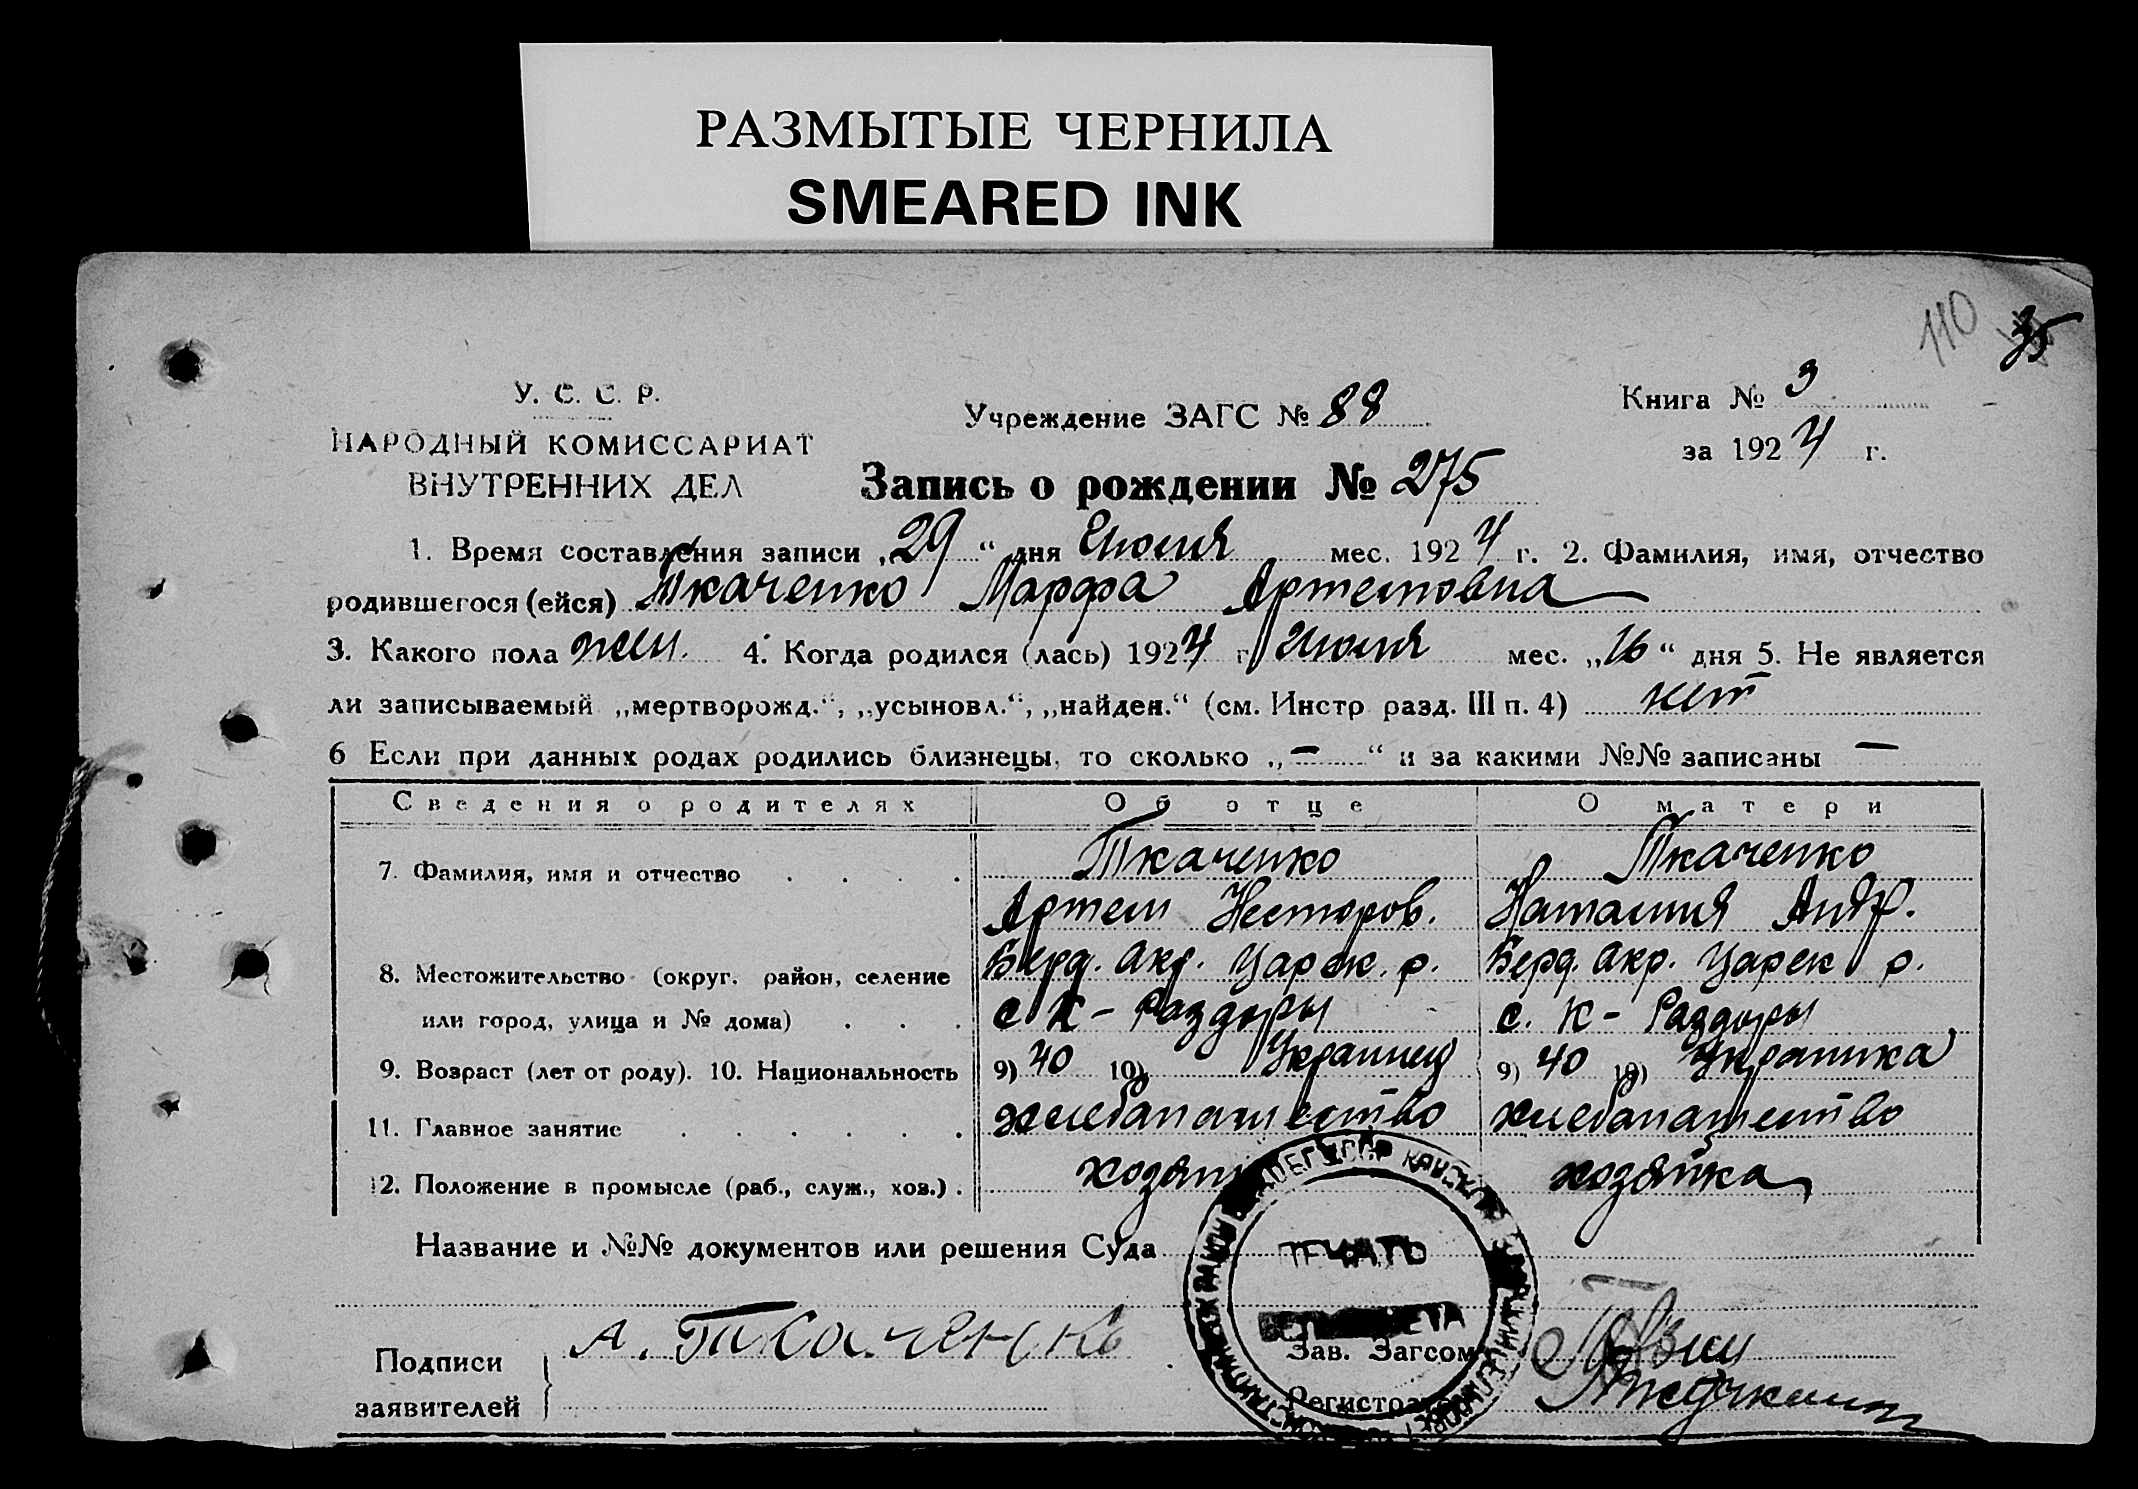 РАЗМЫТЫЕ ЧЕРНИЛА
SMEARED INK
110 35
У. С. С. Р.
НАРОДНЫЙ КОМИССАРИАТ
ВНУТРЕННИХ ДЕЛ
Учреждение ЗАГС № 88
Книга № 3
за 1924 г.
Запись о рождении № 275
1. Время составления записи „29“ дня Июля мес. 1924 г. 2. Фамилия, имя, отчество
родившегося (ейся) Ткаченко Марфа Артемовна
3. Какого пола жен. 4. Когда родился (лась) 1924 г. Июля мес. „16“ дня 5. Не является
ли записываемый „мертворожд.“, „усыновл.“, „найден.“ (см. Инстр разд. III п. 4) нет
6 Если при данных родах родились близнецы, то сколько „—“ и за какими №№ записаны —
Сведения о родителях Об отце О матери
7. Фамилия, имя и отчество . . . . Ткаченко Ткаченко
Артем Несторов. Наталия Андр.
8. Местожительство (округ. район, селение Берд. окр. Царек. р. Берд. окр. Царек р.
или город, улица и № дома) . . . с К - Раздоры с. К - Раздоры
9. Возраст (лет от роду). 10. Национальность 9) 40 10) Украинец 9) 40 10) Украинка
11. Главное занятие . . . . . . хлебопашество хлебопашество
12. Положение в промысле (раб., служ., хоз.) . хозяин хозяйка
Название и №№ документов или решения Суда
ПЕЧАТЬ
Подписи
заявителей
А. Ткаченко
Зав. Загсом
Регистратор